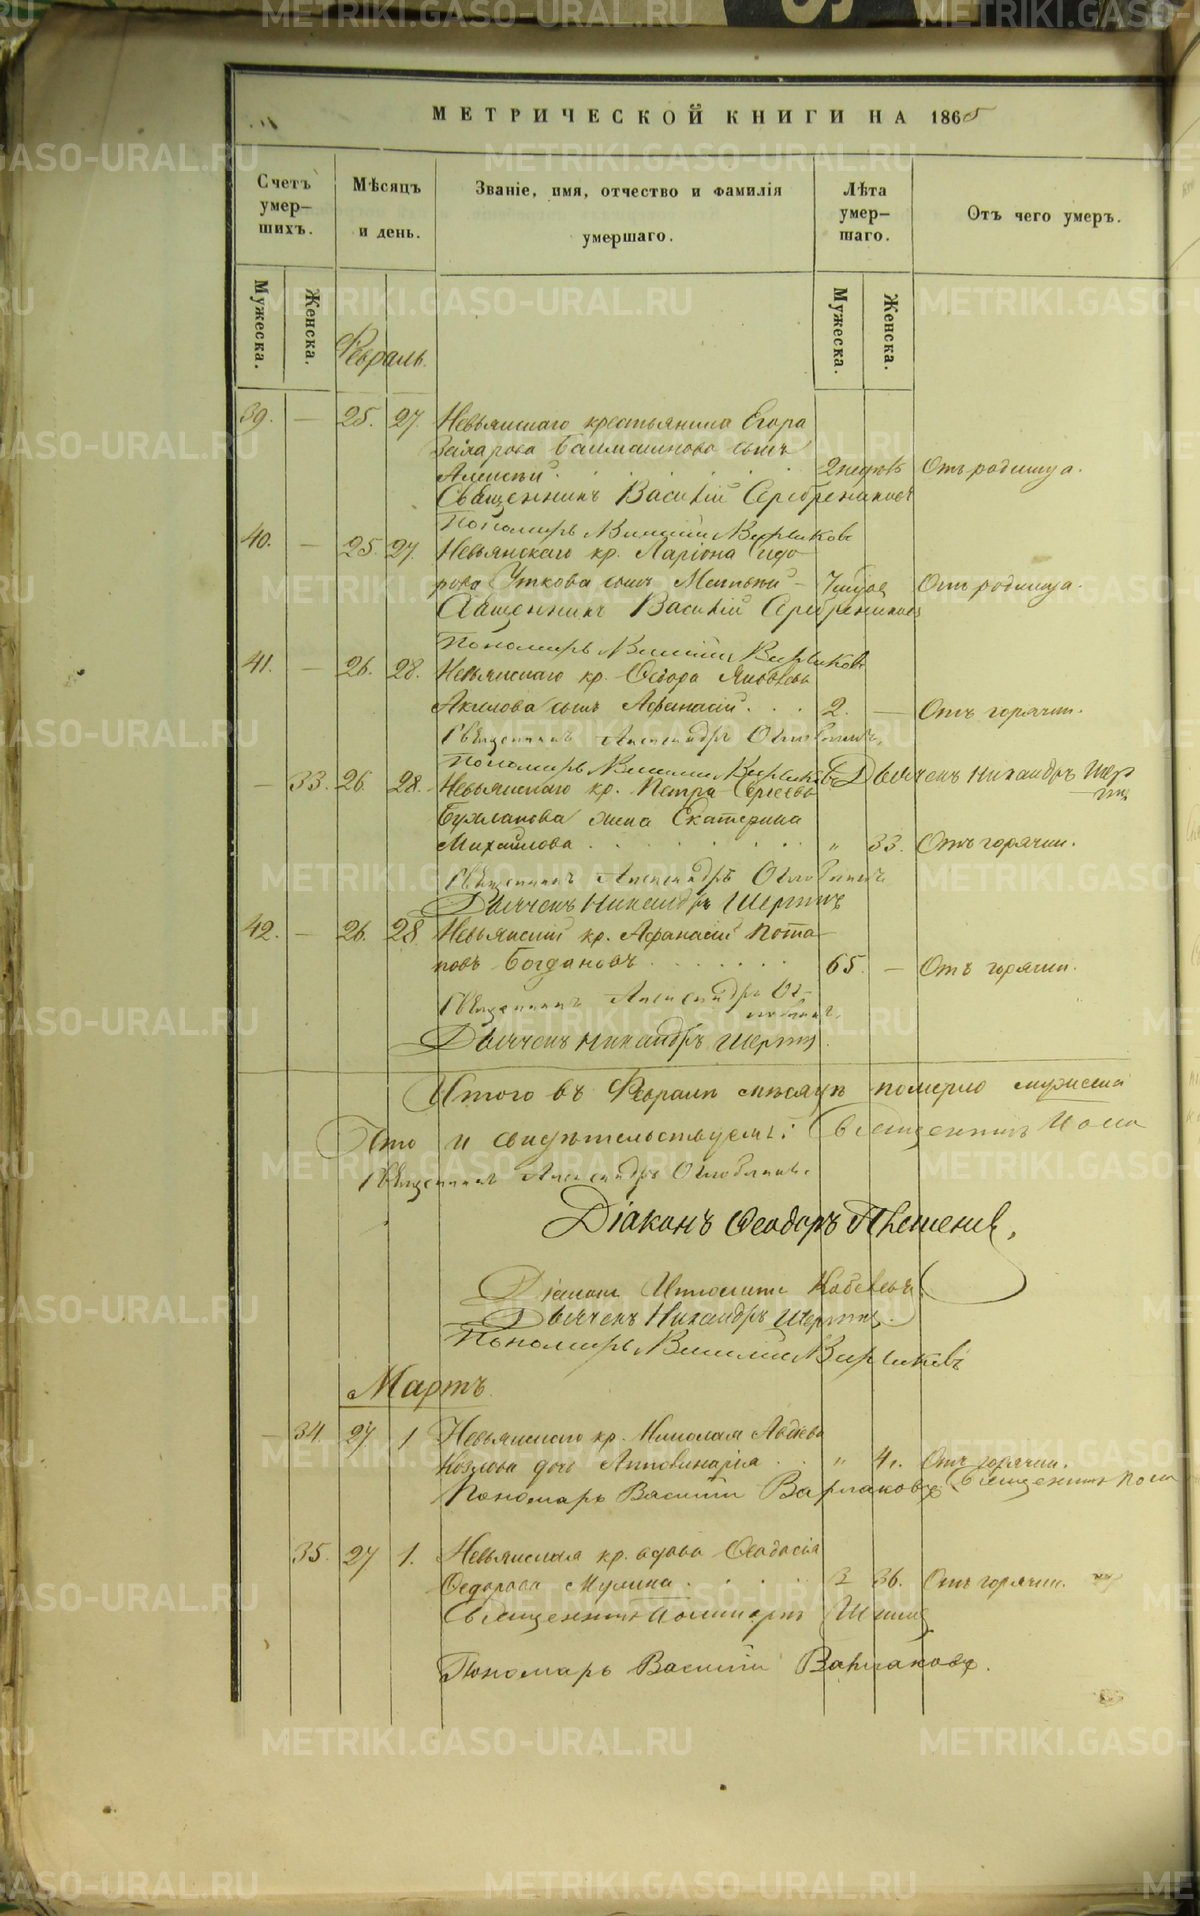 МЕТРИЧЕСКОЙ КНИГИ НА 1865
Счетъ умер-
шихъ.
Мѣсяцъ
и день.
Званіе, имя, отчество и фамилія
умершаго.
Лѣта
умер-
шаго.
Отъ чего умеръ.
Мужеска.
Женска.
Мужеска.
Женска.
Февраль.
39. — 25. 27. Невьянскаго крестьянина Егора
Захарова сынъ
Алексѣй 2 недѣль Отъ родимца.
Священникъ Василій Серебрениковъ
Пономарь Василій Варлаковъ
40. — 25 27. Невьянскаго кр. Ларіона Сидо
рова Уткова сынъ Матвѣй — Отъ родимца.
Священникъ Василій Серебрениковъ
Пономарь Василій Варлаковъ
41. — 26. 28. Невьянскаго кр. Ѳедора Яковлева
Акилова сынъ Афанасій 2. — Отъ горячки.
Священникъ Александръ Оглоблинъ
Пономарь Василій Варлаковъ Дьячекъ Никандръ Шер
гинъ
— 33. 26. 28. Невьянскаго кр. Петра Сергѣева
жена Екатерина
Михайлова „ 33. Отъ горячки.
Священникъ Александръ Оглоблинъ
Дьячекъ Никандръ Шергинъ
42. — 26. 28 Невьянскій кр. Афанасій Пота
повъ Богдановъ 65. — Отъ горячки.
Священникъ Александръ Ог-
лоблинъ
Дьячекъ Никандръ Шергинъ
Итого въ Февралѣ мѣсяцѣ померло мужеска
и свидѣтельствуемъ: Священникъ
Священникъ Александръ Оглоблинъ.
Діаконъ Ѳеодоръ
Діаконъ Ипполитъ
Дьячекъ Никандръ Шергинъ.
Пономарь Василій Варлаковъ
Мартъ.
— 34. 27 1 Невьянскаго кр. Николая Авдѣева
Козлова дочь Апполинарія „ 4. Отъ горячки.
Пономарь Василій Варлаковъ Священникъ
35. 27 1. Невьянская кр. вдова Ѳеодосія
Ѳедорова Мулина 36. Отъ горячки.
Священникъ
Пономарь Василій Варлаковъ.
METRIKI.GASO-URAL.RU